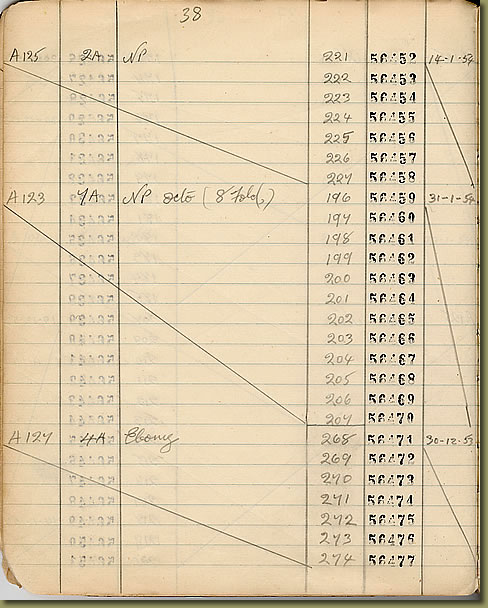 38
A125 2A NP 221 56452 14-1-54
222 56453
223 56454
224 56455
225 56456
226 56457
227 56458
A123 7A NP octo (8 Fold) 196 56459 31-1-54
197 56460
198 56461
199 56462
200 56463
201 56464
202 56465
203 56466
204 56467
205 56468
206 56469
207 56470
A127 4A Ebony 268 56471 30-12-53
269 56472
270 56473
271 56474
272 56475
273 56476
274 56477